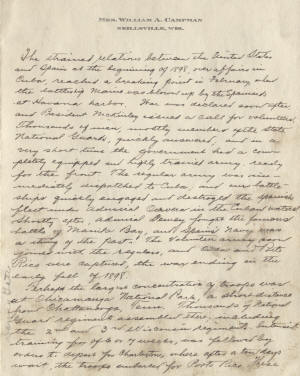 MRS. WILLIAM A. CAMPMAN
NEILLSVILLE, WIS.
The strained relations between the United States
and Spain at the beginning of 1898 over affairs in
Cuba, reached a breaking point in February when
the battleship Maine was blown up by the Spaniards
at Havana harbor. War was declared soon after
and President McKinley issued a call for volunteers.
Thousands of men, mostly members of the State
National Guards, quickly answered, and in a
very short time the government had a com-
pletely equipped and highly trained army, ready
for the front. The regular army was im-
mediately dispatched to Cuba, and our battle-
ships quickly engaged and destroyed the Spanish
fleet under Admiral Cervera in the Cuban waters
Shortly after, Admiral Dewey fought the famous
battle of Manila Bay, and Spain's Navy was
a thing of the past. The Volunteer army soon
joined with the regulars, and Cuba and Porto
Rico were captured, the war ending in the
early fall of 1898.
Perhaps the largest concentration of troops was
at Chicamauga National Park, a short distance
from Chattanooga, Tenn. Thousands of National
Guard regiments assembled there, including
the 2nd and 3rd Wisconsin regiments. Intensive
training for 6 or 7 weeks, was followed by
orders to depart for Charleston, where after a ten days
wait, the troops embarked for Porto Rico. These